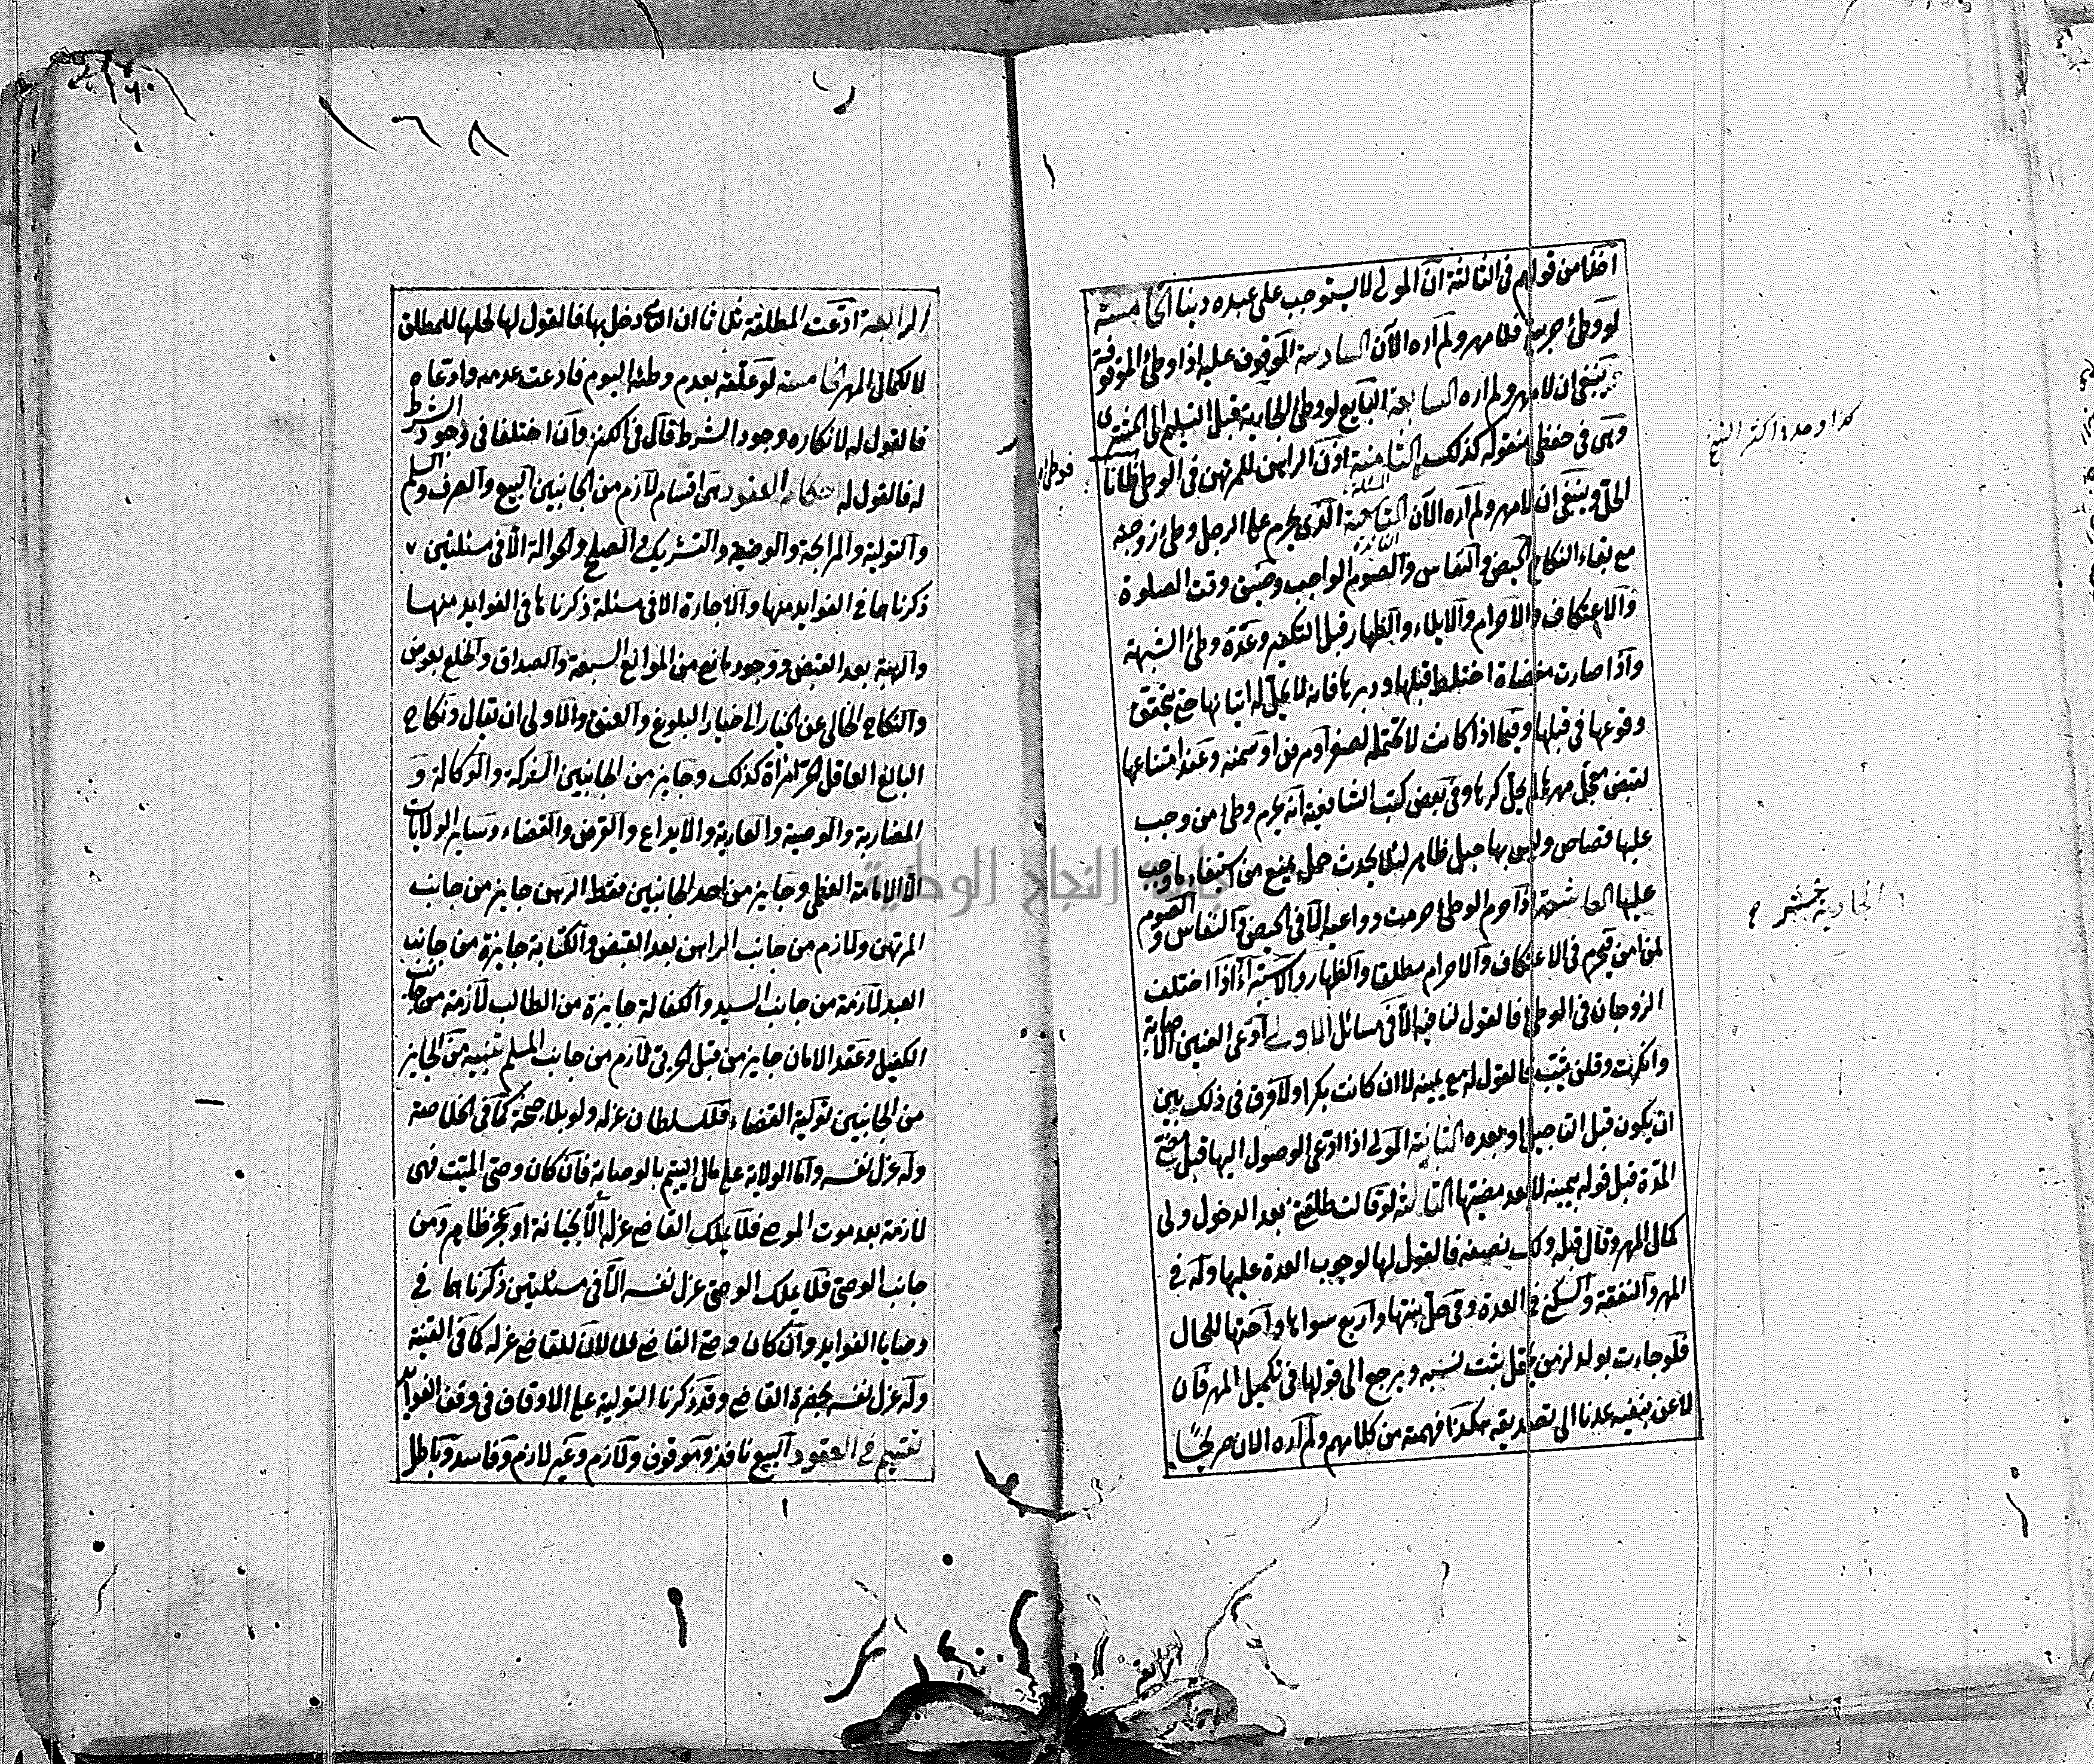 اخذا من قولهم فى الثالثة ان المولى لا يستوجب على عبده دينا الخامسة
لو وطئ حربية فلا مهر ولم اره الآن السادسة الموقوف عليه اذا وطئ الموقوفة
ينبغى ان لا مهر ولم اره السابعة البايع لو وطئ الجارية قبل التسليم الى المشترى
وهى فى حفظى منقولة كذلك الثامنة اذن الراهن للمرتهن فى الوطئ ظانا
الحل وينبغى ان لا مهر ولم اره الآن التاسعة الذى يحرم على الرجل وطئ زوجته
مع بقاء النكاح الحيض والنفاس والصوم الواجب وضيق وقت الصلوة
والاعتكاف والاحرام والايلاء والظهار قبل التكفير وعدة وطئ الشبهة
واذا صارت مفضاة اختلط قبلها ودبرها فانه لا يحل له اتيانها حتى يتحقق
وقوعها فى قبلها وفيما اذا كانت لا تحتمله لصغر او مرض او سمنه وعند امتناعها
لقبض معجل مهرها لم يحل كرها وفى بعض كتب الشافعية انه يحرم وطئ من وجب
عليها قصاص وليس بها حبل ظاهر لئلا يحدث حمل يمنع من استيفاء ما وجب
عليها العاشرة اذا حرم الوطئ حرمت دواعيه الا فى الحيض والنفاس والصوم
لمن امن فيحرم فى الاعتكاف والاحرام مطلقا والظهار والاستبراء اذا اختلف
الزوجان فى الوطئ فالقول لنافيه الا فى مسائل الاولى ادعى العنين الاصابة
وانكرت وقلن ثيب فالقول له مع يمينه لا ان كانت بكرا ولا فرق فى ذلك بين
ان يكون قبل التاجيل او بعده الثانية المولى اذا ادعى الوصول اليها قبل مضى
المدة قبل قوله بيمينه لا بعد مضيها الثالثة لو قالت طلقنى بعد الدخول ولى
كمال المهر وقال قبله ولك نصفه فالقول لها لوجوب العدة عليها وله فى
المهر والنفقة والسكنى فى العدة وفى حل بنتها واربع سواها واختها للحال
فلو جاءت بولد لزمن يحتمل ثبت نسبه ويرجع الى قولها فى تكميل المهر فان
لاعن بنفيه عدنا الى تصديقه هكذا فهمته من كلامهم ولم اره الان صريحا
كذا وجد فى اكثر النسخ
١٦٨
الرابعة ادعت المطلقة ثلاثا ان الثانى دخل بها فالقول لها لحلها للمطلق
لا لكمال المهر الخامسة لو علقه بعدم وطئه اليوم فادعت عدمه وادعاه
فالقول له لانكاره وجود الشرط قال فى الكنز وان اختلفا فى وجود الشرط
له فالقول له احكام العقود هى اقسام لازم من الجانبين البيع والصرف والسلم
والتولية والمرابحة والوضيعة والتشريك والصلح والحوالة الا فى مسئلتين
ذكرناها فى الفوايد منها والاجارة الا فى مسئلة ذكرناها فى الفوايد منها
والهبة بعد القبض ووجود مانع من الموانع السبعة والصداق والخلع بعوض
والنكاح الخالى عن الخيارات خيار البلوغ والعتق والاولى ان يقال ونكاح
البالغ العاقل الحر امرأة كذلك وجايز من الجانبين الشركة والوكالة و
المضاربة والوصية والعارية والايداع والقرض والقضاء وساير الولايات
الا الامامة العظمى وجايز من احد الجانبين فقط الرهن جايز من جانب
المرتهن ولازم من جانب الراهن بعد القبض والكتابة جايزة من جانب
العبد لازمة من جانب السيد والكفالة جايزة من الطالب لازمة من جانب
الكفيل وعقد الامان جايز من قبل الحربى لازم من جانب المسلم تنبيه من الجايز
من الجانبين تولية القضاء فللسلطان عزله ولو بلا جنحة كما فى الخلاصة
وله عزل نفسه واما الولاية على مال اليتيم بالوصاية فان كان وصى الميت فهى
لازمة بعد موت الموصى فلا يملك القاضى عزله الا بخيانة او عجز ظاهر ومن
جانب الوصى فلا يملك الوصى عزل نفسه الا فى مسئلتين ذكرناها فى
وصايا الفوايد وان كان وصى القاضى فلا لان للقاضى عزله كما فى القنية
وله عزل نفسه بحضرة القاضى وقد ذكرنا التولية على الاوقاف فى وقف الفوايد
تقسيم فى العقود البيع نافذ وموقوف ولازم وغير لازم وفاسد وباطل